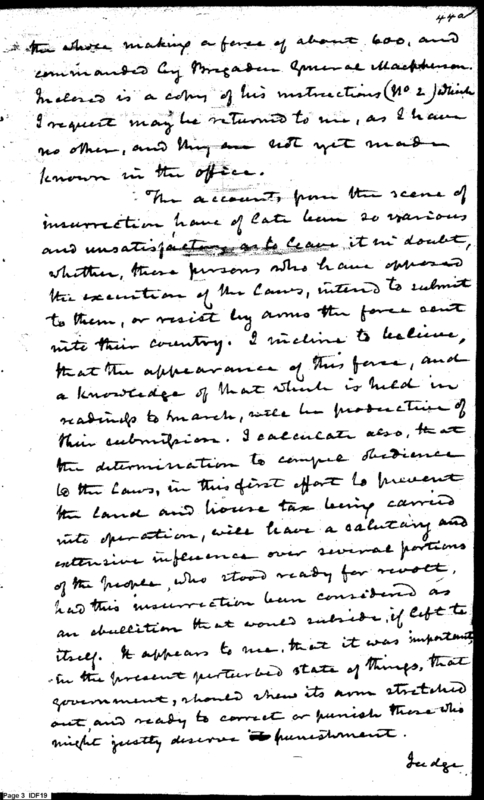 44a
the whole making a force of about 600, and
commanded by Brigadier General Macpherson.
Inclosed is a copy of his instructions (No 2) which
I request may be returned to me, as I have
no other, and they are not yet made
known in the office.
The accounts from the scene of
insurrection, have of late been so various
and unsatisfactory as to leave it in doubt,
whether, those persons who have opposed
the execution of the Laws, intend to submit
to them, or resist by arms the force sent
into their country. I incline to believe,
that the appearance of this force, and
a knowledge of that which is held in
readiness to march, will be productive of
their submission. I calculate also, that
the determination to compel obedience
to the Laws, in this first effort to prevent
the land and house tax being carried
into operation, will have a salutary and
extensive influence over several portions
of the people, who stood ready for revolt,
had this insurrection been considered as
an ebullition that would subside, if left to
itself. It appears to me, that it was important,
in the present perturbed state of things, that
government, should shew its arm stretched
out, and ready to correct or punish those who
might justly deserve punishment.
Judge
Page 3 IDF19